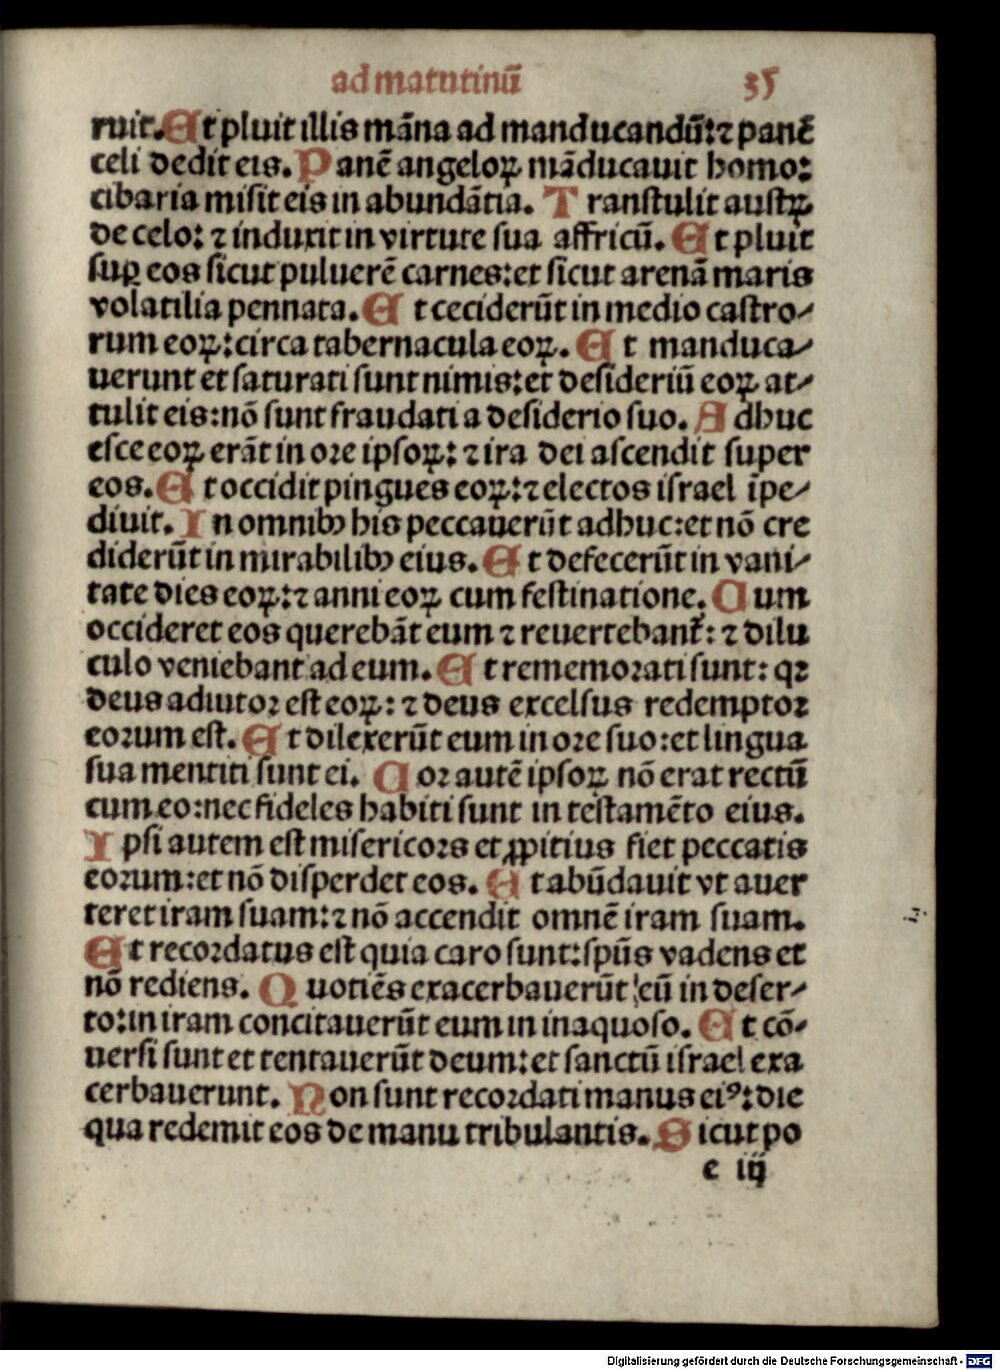 ad matutinū 35
ruit. Et pluit illis māna ad manducandū: ⁊ panē
celi dedit eis. Panē angeloꝝ māducauit homo:
cibaria misit eis in abundātia. Transtulit austꝝ
de celo: ⁊ induxit in virtute sua affricū. Et pluit
suꝑ eos sicut puluerē carnes: et sicut arenā maris
volatilia pennata. Et ceciderūt in medio castro⸗
rum eoꝝ: circa tabernacula eoꝝ. Et manduca⸗
uerunt et saturati sunt nimis: et desideriū eoꝝ at⸗
tulit eis: nō sunt fraudati a desiderio suo. Adhuc
esce eoꝝ erāt in ore ipsoꝝ: ⁊ ira dei ascendit super
eos. Et occidit pingues eoꝝ: ⁊ electos israel īpe⸗
diuit. In omnibꝫ his peccauerūt adhuc: et nō cre
diderūt in mirabilibꝫ eius. Et defecerūt in vani⸗
tate dies eoꝝ: ⁊ anni eoꝝ cum festinatione. Cum
occideret eos querebāt eum ⁊ reuertebant᷑: ⁊ dilu
culo veniebant ad eum. Et rememorati sunt: qꝛ
deus adiutor est eoꝝ: ⁊ deus excelsus redemptor
eorum est. Et dilexerūt eum in ore suo: et lingua
sua mentiti sunt ei. Cor autē ipsoꝝ nō erat rectū
cum eo: nec fideles habiti sunt in testamēto eius.
Ipsi autem est misericors et ꝓpitius fiet peccatis
eorum: et nō disperdet eos. Et abūdauit vt auer
teret iram suam: ⁊ nō accendit omnē iram suam.
Et recordatus est quia caro sunt: spūs vadens et
nō rediens. Quotiēs exacerbauerūt eū in deser⸗
to: in iram concitauerūt eum in inaquoso. Et cō⸗
uersi sunt et tentauerūt deum: et sanctū israel exa
cerbauerunt. Non sunt recordati manus eiꝰ: die
qua redemit eos de manu tribulantis. Sicut po
e iij
Digitalisierung gefördert durch die Deutsche Forschungsgemeinschaft - DFG